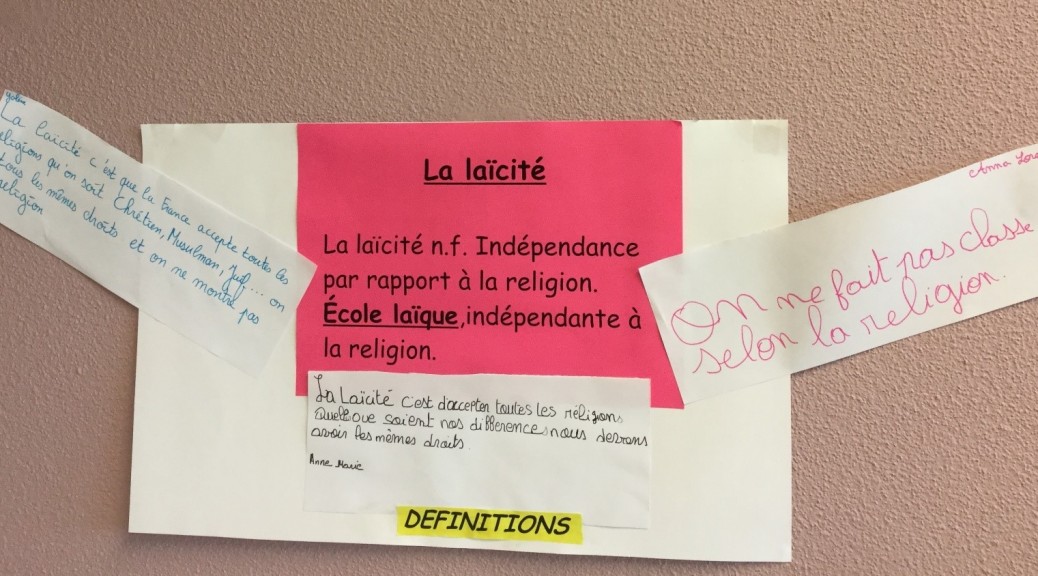 La laïcité
La laïcité n.f. Indépendance
par rapport à la religion.
École laïque,indépendante à
la religion.
La laïcité c'est que la France accepte toutes les
religions qu'on soit Chrétien, Musulman, Juif... on
tous les mêmes droits et on ne montre pas
religion
Anna
On ne fait pas classe
selon la religion.
La Laïcité c'est d'accepter toutes les réligions
Quelleque soient nos différences nous devrons
avoir les mêmes droits.
Anne Marie
DEFINITIONS